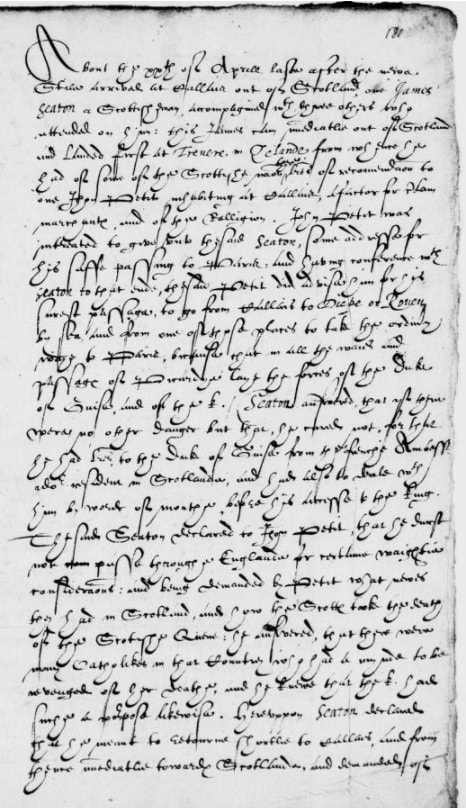 181
About the xxth of Aprill laste after the newe
Stile arrived at Callais out of Scotland, one James
Seaton a Scottishman, accompagnied wth three others who
attended on him: this James cam imediatlie out of Scotland
and landed first at Trevere in Zelande, from whence he
had of some of the Scottishe marchants lres of recomendacon to
one Jhon Petit inhabiting at Callais, a factor for
marchants, and of the Relligion. Jhon Petit was
intreated to geve unto the said Seaton, some addresse for
his saffe passing to Parie, and having conference wth
Seaton to that ende, the said Petit did advise him for his
surest passage, to go from Callais to Diepe or Rouen
by sea, and from one of those places to take the ordinary
waye to Parie, because that in all the waies and
passage of Picardye laye the forces of the Duke
of Guise, and of the k. Seaton answered, that if there
were no other danger but that, he cared not, for that
he had lres to the Duke of Guise from the frenche Ambass
ador resident in Scotlande, and had also to deale wth
him by worde of mouthe, before his accesse to the king.
The said Seaton declared to Jhon Petit, that he durst
not passe through Englande for certaine waightie
consideracons: and being demanded by Petit what newes
they had in Scotland, and how the Scotts took the death
of the Scotishe Quene: he answered, that there were
many Catholikes in that Countrey who had a mynde to be
revenged of her deathe, and he knewe that the k. had
suche a purpose likewise. Hereuppon Seaton declared
that he ment to retourne shortlie to Callais, and from
thence imediatlie towards Scotllande, and demanded of